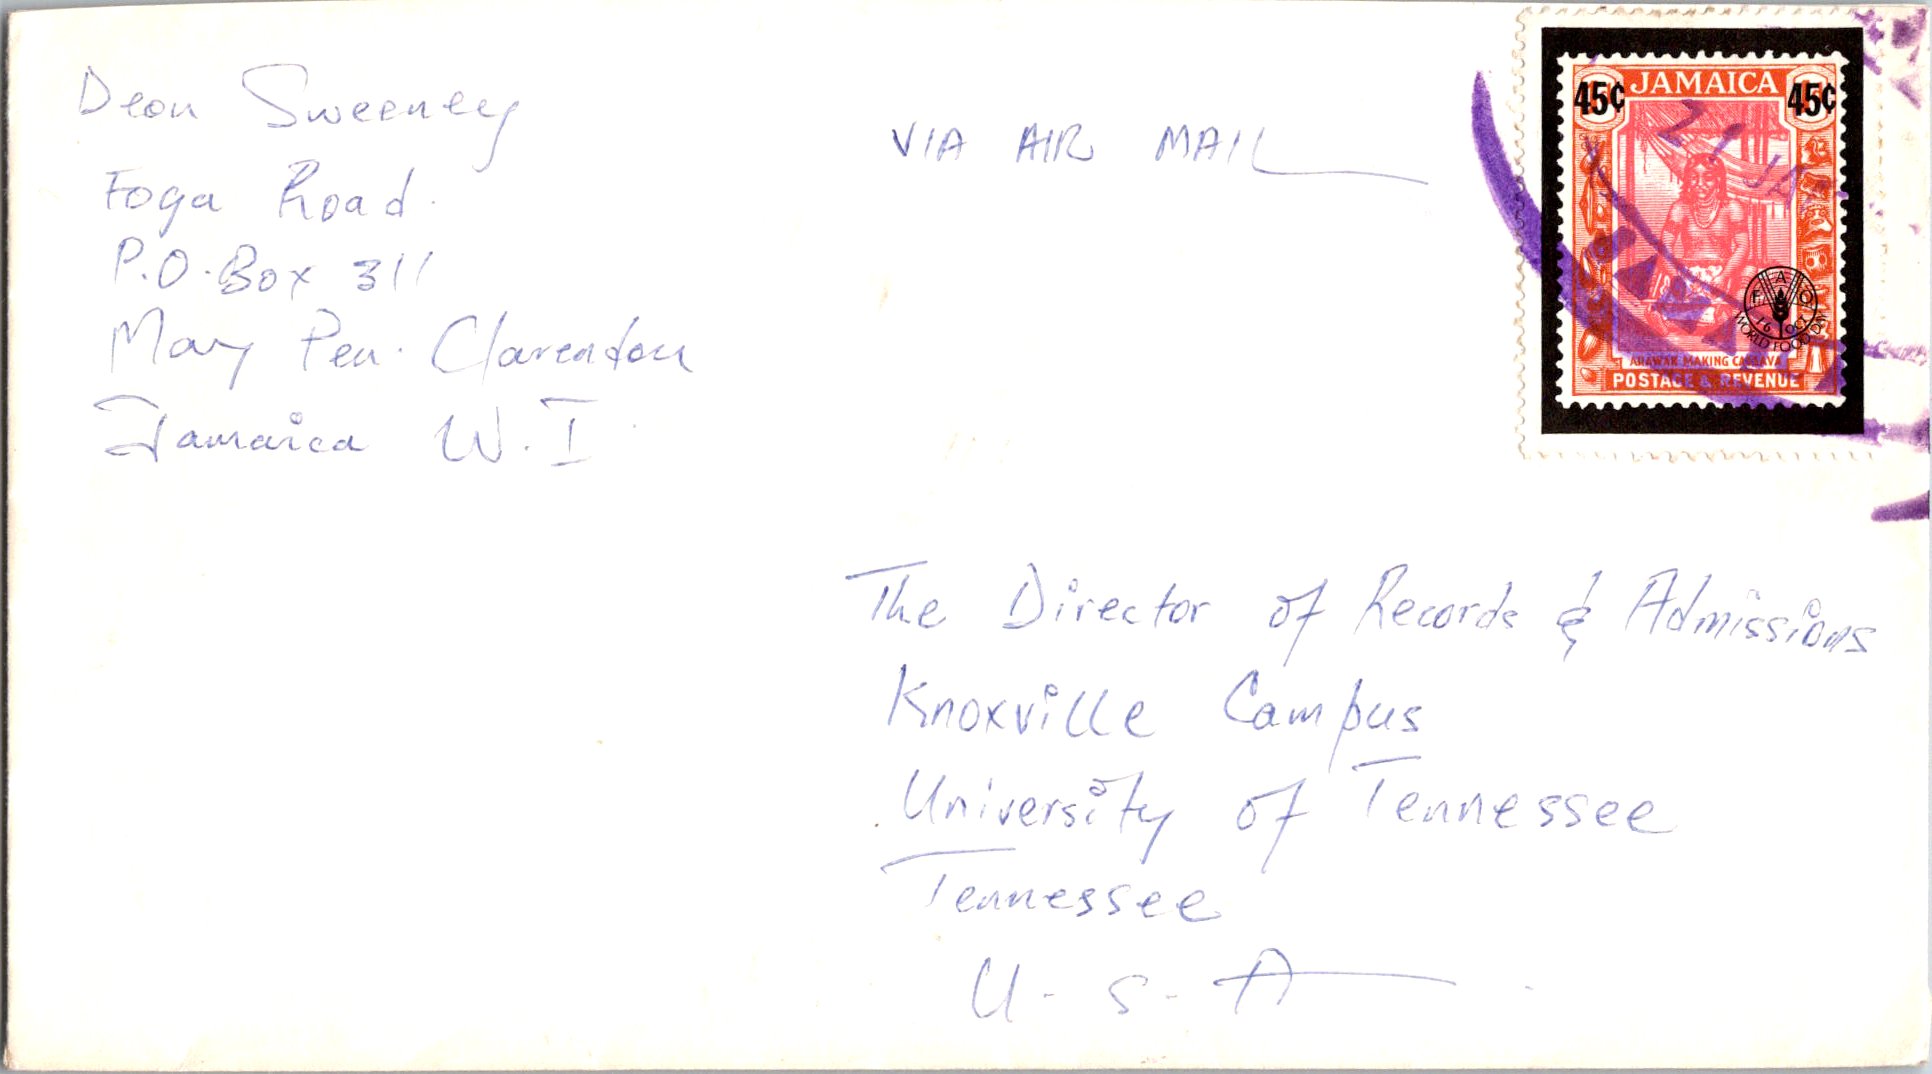 Deon Sweeney
Foga Road.
P.O. Box 311
May Pen. Clarendon
Jamaica W.I
VIA AIR MAIL
45¢ JAMAICA 45¢
21 JA
F A O
16 OCT
WORLD FOOD DAY
ARAWAK MAKING CASSAVA
POSTAGE & REVENUE
The Director of Records & Admissions
Knoxville Campus
University of Tennessee
Tennessee
U.S.A